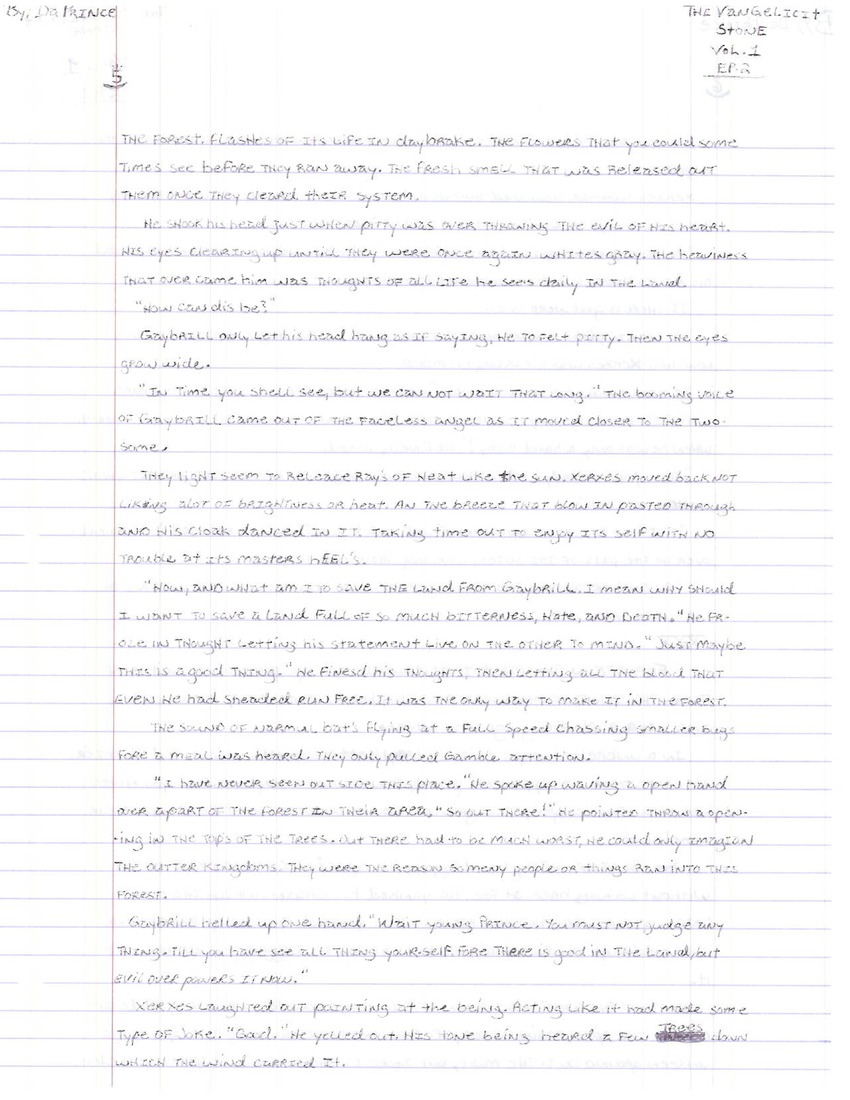 By, Da Prince
THE VANGELICIT
STONE
VOL. 1
EP. 2
5
THE FOREST. FLASHES OF ITS LIFE IN daybrake. THE FLOWERS THAT you could some
Times see before THEY RAN away. THE FRESH SMELL THAT was Released out
THEM ONCE THEY cleard theIR system.
HE SHOOK his head JUST WHEN pitty was over THROWING THE evil OF HIS heart.
HIS eyes clearing up untill THEY WERE ONCE again whites gray. THE heaviness
THAT over came him was THOUGHTS OF all LIFE he sees daily IN THE Land.
"How can dis be?"
GaybRILL only Let his head hang as IF saying, HE TO FELT pitty. THEN THE eyes
grow wide.
"IN Time you shell see, but we can NOT wait THAT Long." THE booming voice
OF GaybRILL came out OF THE Faceless angel as IT moved closer TO THE Two-
some.
THEY light seem TO Releace Ray's OF Heat Like the sun. XERXES moved back NOT
Liking alot OF brightness OR heat. AN THE breeze THAT blow IN pasted THROUGH
AND His cloak danced IN IT. Taking time out TO enjoy ITS self WITH NO
TROUBLE at Its masters hEEL's.
"HOW, AND WHAT am I TO SAVE THE LAND FROM GaybRILL. I mean WHY SHould
I WANT TO save a Land Full OF so much bitterness, Hate, AND Death." HE FR-
OZE IN THOUGHT Letting his statement Live ON THE OTHER TO MIND. "Just Maybe
THIS is a good THING." HE Finesd his THOUGHTS, THEN Letting all THE blood THAT
EVEN HE had sheaded RUN FREE. It was THE only way TO make IT IN THE FOREST.
THE SOUND OF NORMUL bat's Flying at a Full Speed Chassing smaller bugs
FORE a meal was heard. THEY only pulled Gamble attention.
"I have NEVER seen out side THIS place." HE spoke up waving a open hand
over apart OF THE FOREST IN TheIR area, "So out THERE!" HE pointed THROW a open-
ing in THE Top's OF THE TREES. Out THERE had to be MUCH WORST, HE could only Imagian
THE outter Kingdoms. THEY WERE THE REASON someny people OR things RAN INTO THIS
FOREST.
GaybRILL Helled up one hand. "Wait young PRINCE. You must NOT judge any
THING. TILL you have see all THING your-self FORE THERE is good IN THE Land, but
evil over powers IT NOW."
XERXES Laughted out painting at the being. Acting Like it had made some
Type OF Joke. "Good." HE yelled out. HIS tone being heard a Few Trees down
WHICH THE WIND CARRIED It.